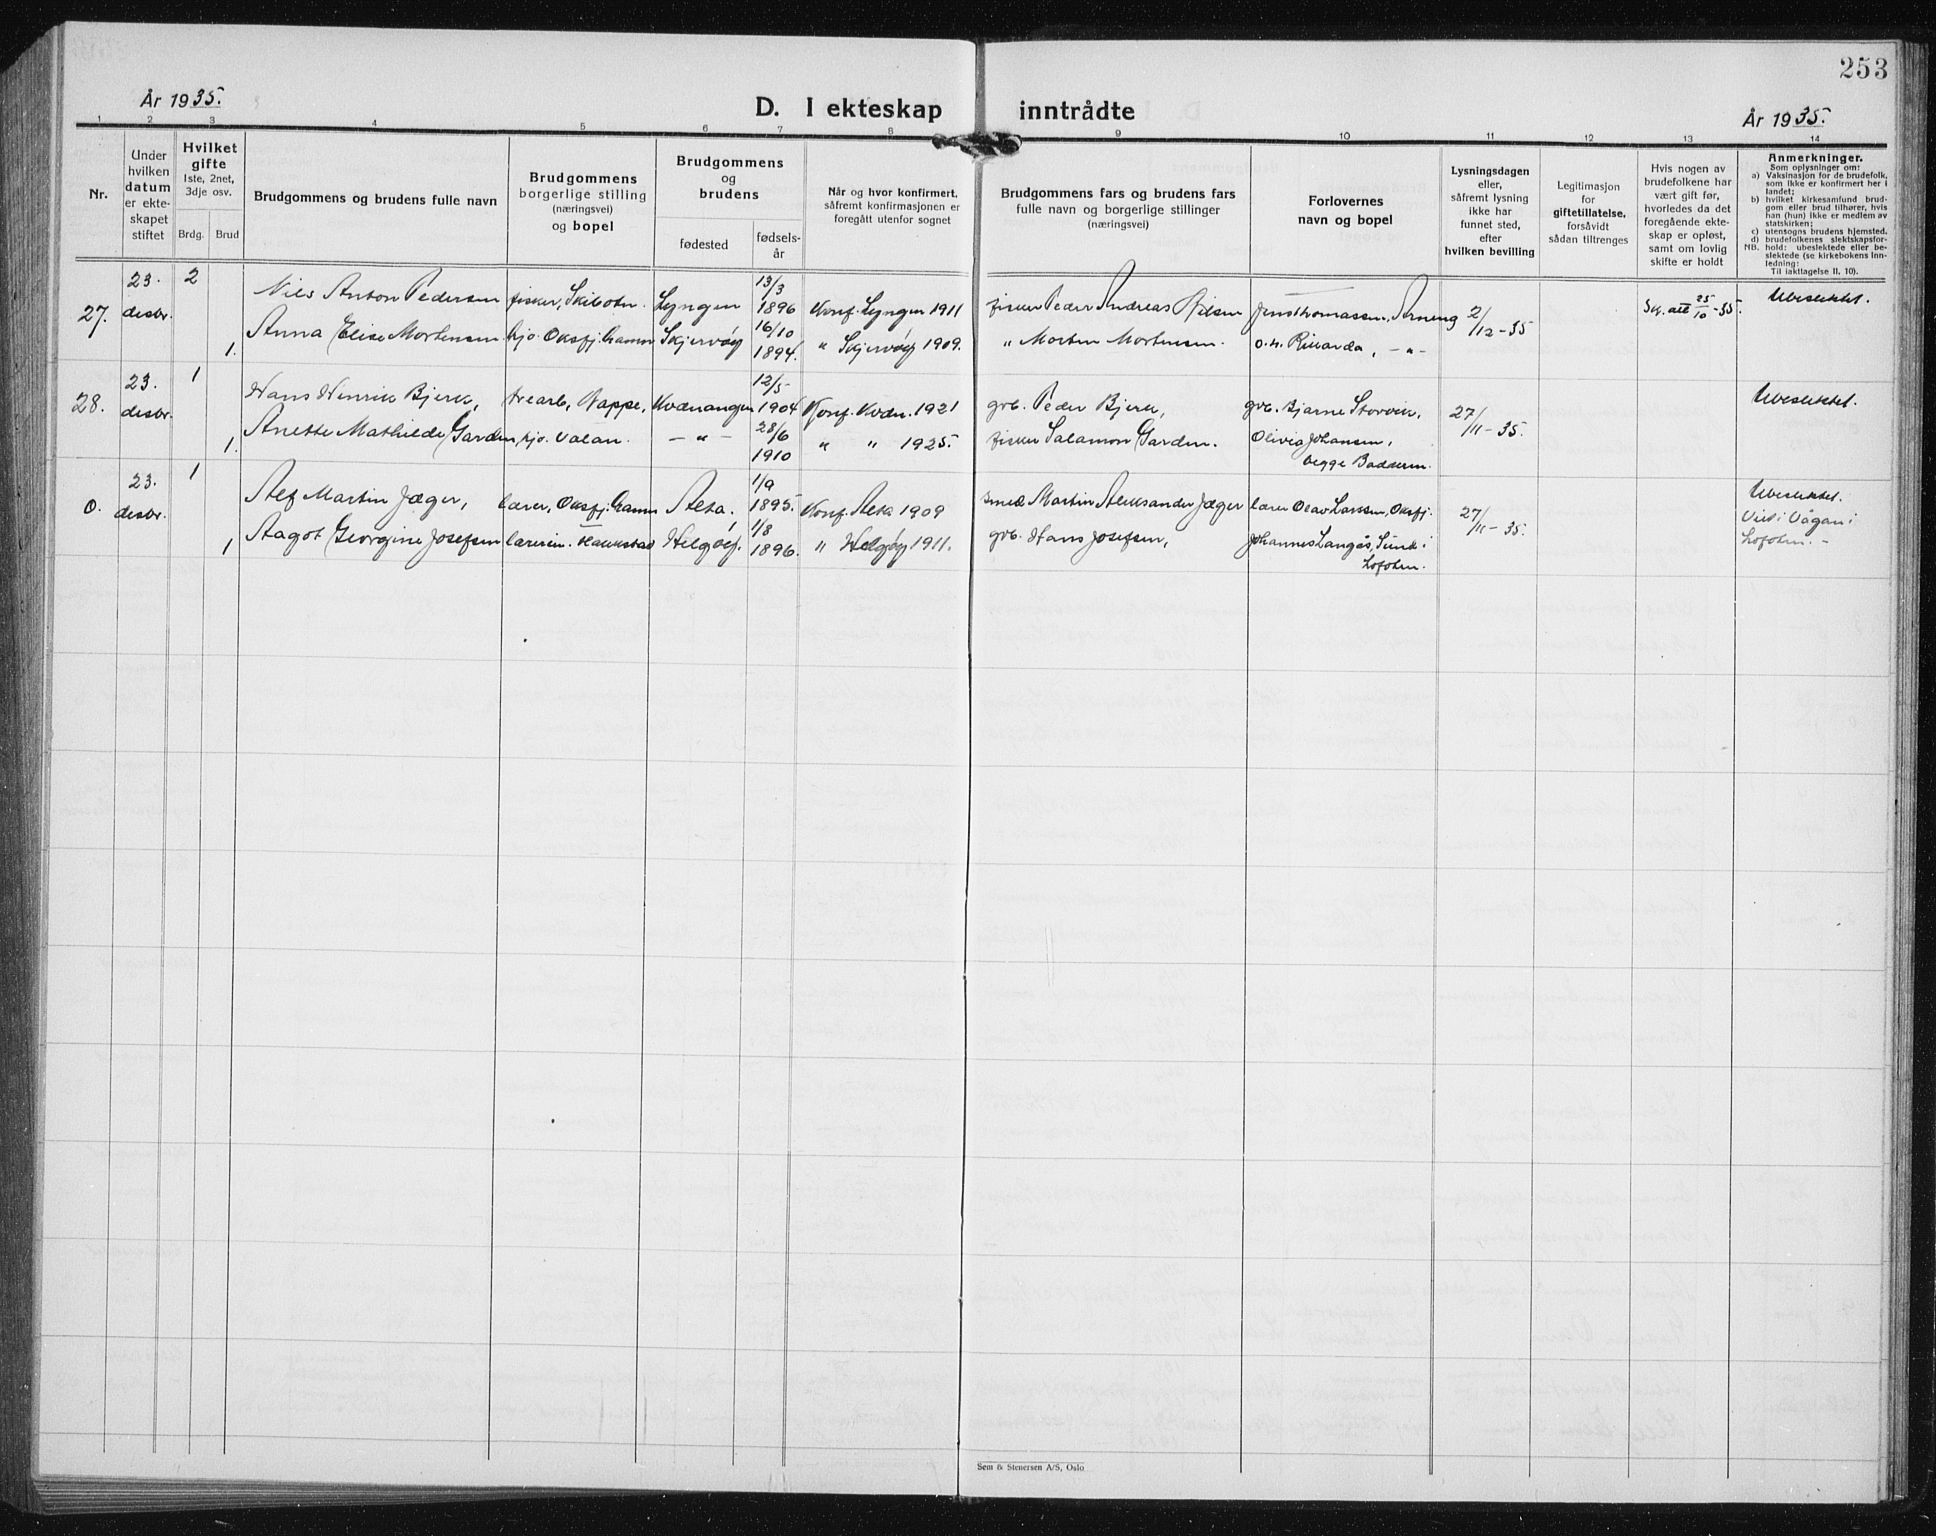 253
År 1935.
D. I ekteskap inntrådte
År 1935.
1 2 3 4 5 6 7 8 9 10 11 12 13 14
Nr.
Under
hvilken
datum
er ekte-
skapet
stiftet
Hvilket
gifte
1ste, 2net,
3dje osv.
Brdg.
Brud
Brudgommens og brudens fulle navn
Brudgommens
borgerlige stilling
(næringsvei)
og bopel
Brudgommens
og
brudens
fødested
fødsels-
år
Når og hvor konfirmert.
såfremt konfirmasjonen er
foregått utenfor sognet
Brudgommens fars og brudens fars
fulle navn og borgerlige stillinger
(næringsvei)
Forlovernes
navn og bopel
Lysningsdagen
eller,
såfremt lysning
ikke har
funnet sted,
efter
hvilken bevilling
Legitimasjon
for
giftetillatelse,
forsåvidt
sådan tiltrenges
Hvis nogen av
brudefolkene har
vært gift før,
hvorledes da det
foregående ekte-
skap er opløst,
samt om lovlig
skifte er holdt
Anmerkninger.
Som oplysninger om:
a) Vaksinasjon for de brudefolk,
som ikke er konfirmert her i
landet;
b) hvilket kirkesamfund brud-
gom eller brud tilhører, hvis
han (hun) ikke er medlem av
statskirken;
c) utensogns brudens hjemsted.
d) brudefolkenes slektskapsfor-
NB. hold: ubeslektede eller be-
slektede (se kirkebokens Inn-
ledning:
Til iakttagelse II. 10).
27. 23. desbr. 2 Nils Anton Pedersen fisker, Skibotn. Lyngen 13/3 1896 Konf. Lyngen 1911 fisker Peder Andreas Nilsen Jens Thomassen, Årneng 2/12-35 Sk. att 25/10-35. Ubeslektet.
1. Anna Elise Mortensen hjo. Oksfj. hamn Skjervøy 16/10 1894. " Skjervøy 1909. " Morten Mortensen. o. h. Rikarda, -"-
28. 23. desbr. 1 Hans Henrik Bjerk, trearb, Nappe, Kvænangen 12/5 1904 Konf. Kvæn. 1921 grb. Peder Bjerk, grb. Bjarne Storvik, 27/11-35. Ubeslektet.
1. Anette Mathilde Garden, hjo. Valan. -"- 28/6 1910 " " 1925. fisker Salamon Garden. Olivia Johansen,
begge Badderen.
0. 23. desbr. 1 Alf Martin Jæger, lærer, Oksfj. hamn Alta. 1/9 1895. Konf. Alta 1909 smed Martin Aleksander Jæger lærer Olav Larssen, Oksfj. 27/11-35. Ubeslektet.
1 Aagot Georgine Josefsen lærerin. Haukstad Helgøy. 1/8 1896. " Helgøy 1911. grb. Hans Josefsen, Johannes Langås, Sund i
Lofoten.
Viet i Vågan i
Lofoten. -
Sem & Stenersen A/S, Oslo